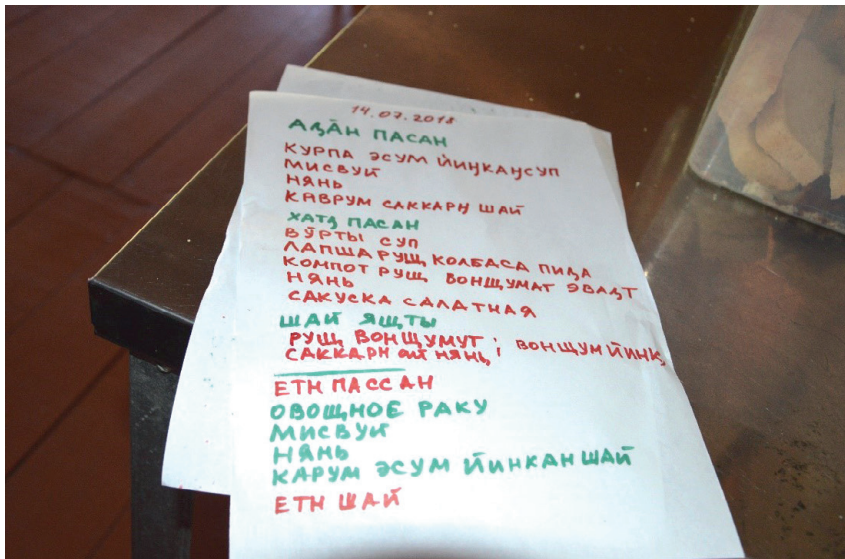 14.07.2018
АԒӐН ПАСАН
КУРПА ӘСУМ ЙИҢКАҢСУП
МИСВУЙ
НЯНЬ
КАВРУМ САККАРӇ ШАЙ
ХАТԒ ПАСАН
ВЎРТЫ СУП
ЛАПША РУЩ КОЛБАСА ПИԒА
КОМПОТ РУЩ ВОНЩУМАТ ЭВАԒТ
НЯНЬ
САКУСКА САЛАТНАЯ
ШАЙ ЯЩТЫ
РУЩ ВОНЩУМУТ; ВОНЩУМ ЙИНҚ
САККАРН АЙ НЯНЬ;
ЕТН ПАССАН
ОВОЩНОЕ РАКУ
МИСВУЙ
НЯНЬ
КАРУМ ӘСУМ ЙИНКАН ШАЙ
ЕТН ШАЙ